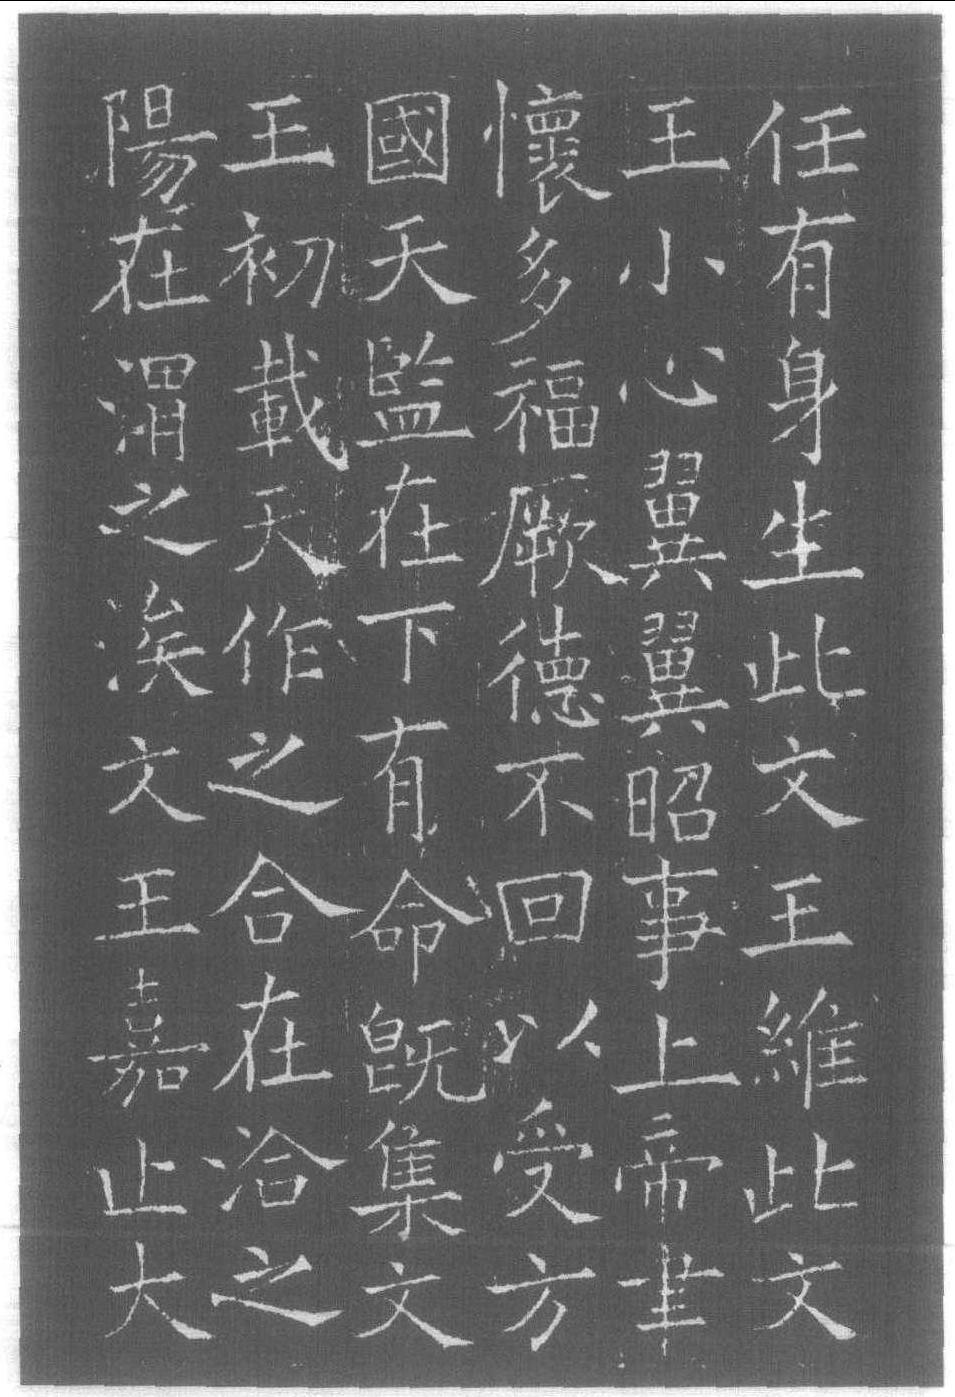 任有身生此文王維此文
王小心翼翼昭事上帝聿
懷多福厥德不回以受方
國天監在下有命既集文
王初載天作之合在洽之
陽在渭之涘文王嘉止大